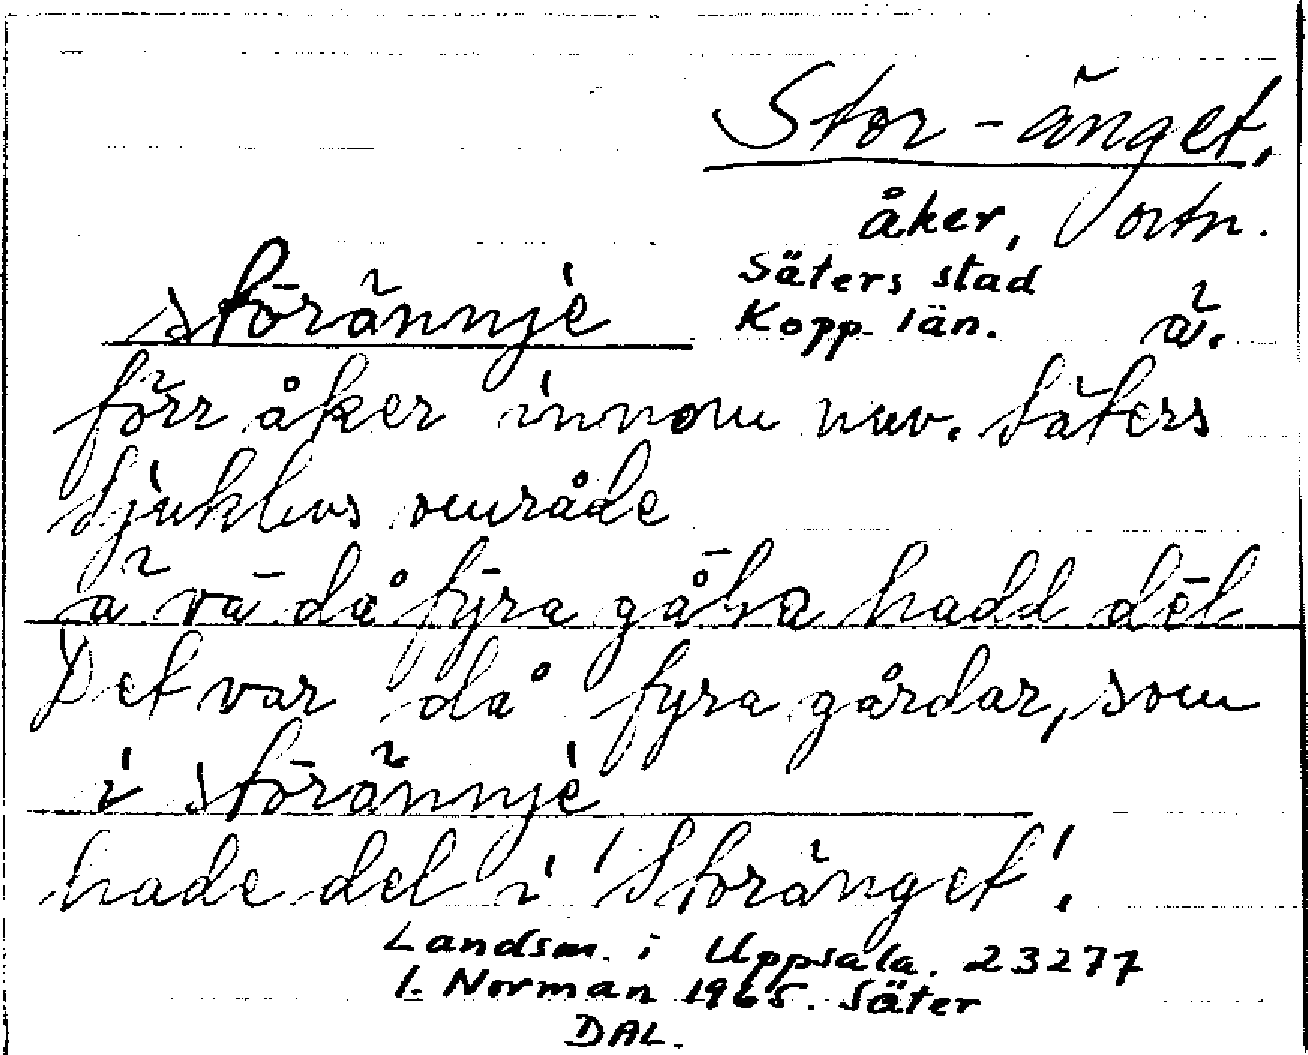 Stor-änget,
åker, ortn.
Säters stad
Kopp. län. ä.
störännje
förr åker innom nuv. Säters
Sjukhus område
ä va då fyra gåḷa hadd del
Det var då fyra gårdar, som
i störännje
hade del i 'Storänget'.
Landsm. i Uppsala. 23277
I. Norman 1965. Säter
DAL.